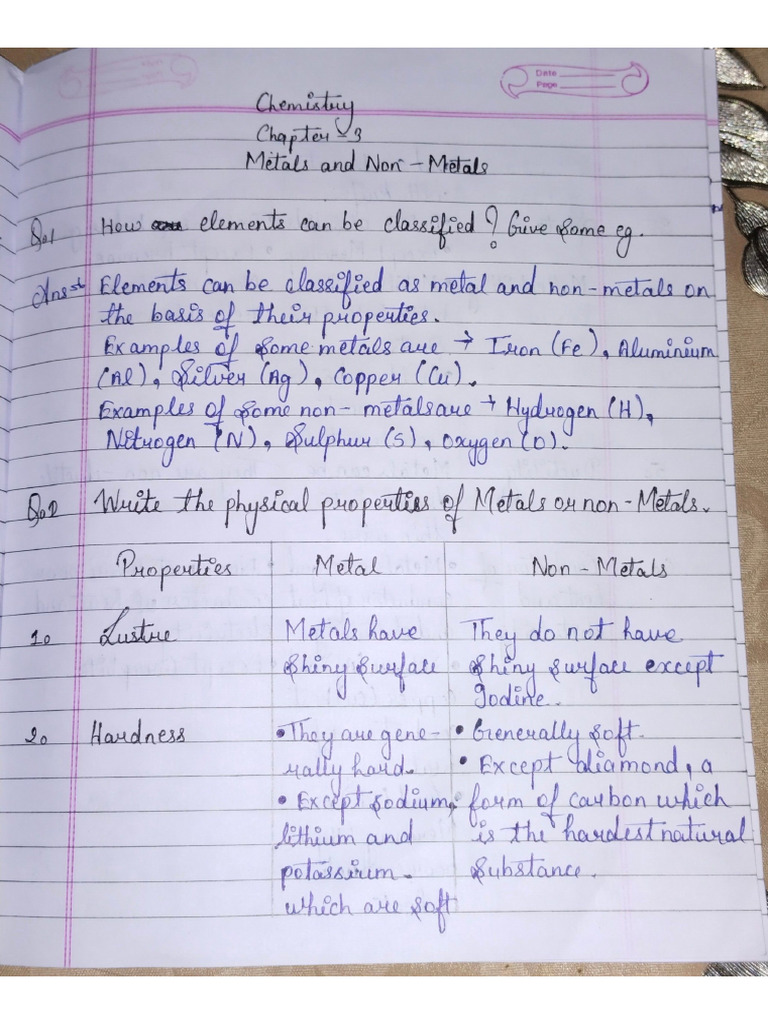 Date
Page
Chemistry
Chapter - 3
Metals and Non - Metals
Q.1 How elements can be classified? Give some eg.
Ans Elements can be classified as metal and non-metals on
the basis of their properties.
Examples of some metals are → Iron (Fe), Aluminium
(Al), Silver (Ag), Copper (Cu).
Examples of some non- metals are → Hydrogen (H),
Nitrogen (N), Sulphur (S), Oxygen (O).
Q.2 Write the physical properties of Metals or non-Metals.
Properties Metal Non - Metals
1. Lustre Metals have They do not have
shiny surface shiny surface except
Iodine.
2. Hardness • They are gene- • Generally soft.
rally hard. • Except diamond, a
• Except sodium, form of carbon which
lithium and is the hardest natural
potassium. substance.
which are soft